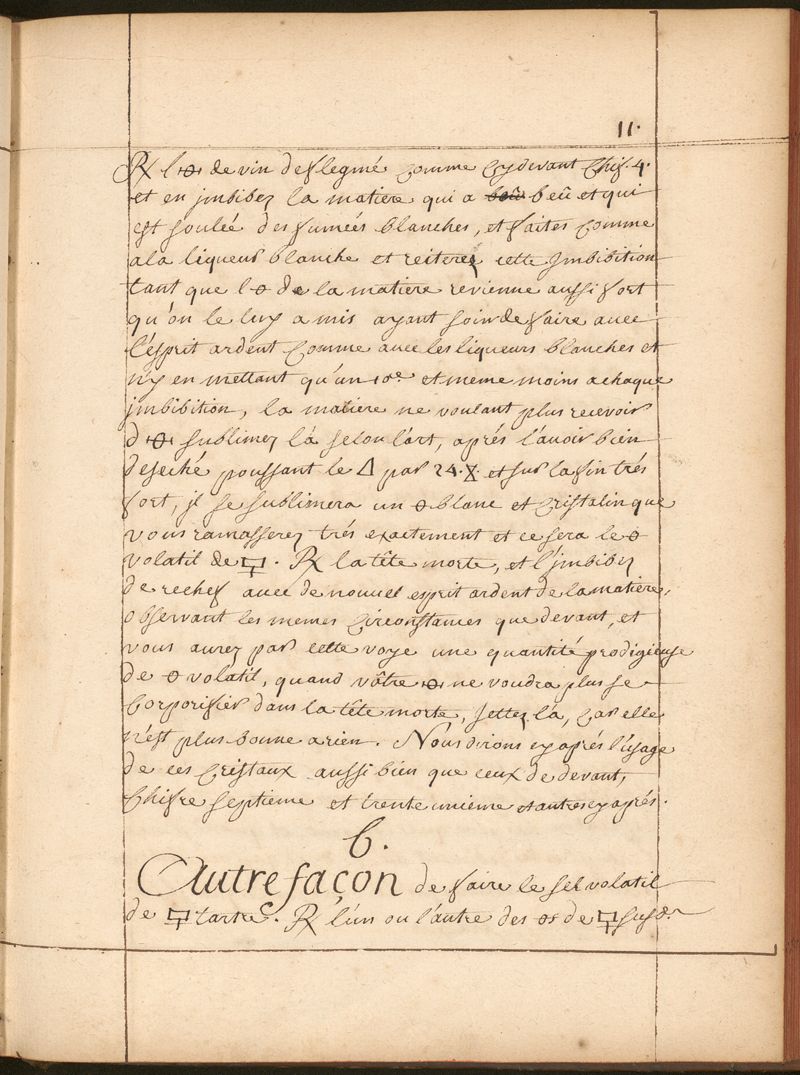 11.
℞ l'·ꝋ· de vin deflegmé comme cydevant Chif. 4.
et en jmbibez la matiere qui a beû beû et qui
est soulée des fumées blanches, et faites comme
a la liqueur blanche et reiterez cette Jmbibition
tant que l'ꝋ de la matiere revienne aussi fort
qu'on le luy a mis ayant soin de faire avec
l'esprit ardent comme avec les liqueurs blanches et
n'y en mettant qu'un 10e. et meme moins a chaque
jmbibition, la matiere ne voulant plus recevoir
d'·ꝋ· sublimez la selon l'art, aprés l'avoir bien
deseché poussant le △ par 24. et sur la fin trés
fort, jl se sublimera un ꝋ blanc et cristalin que
vous ramasserez trés exactement et ce sera le ꝋ
volatil de 🜿. ℞ la tête morte, et l'jmbibez
de rechef avec de nouvel esprit ardent de la matiere,
observant les memes circonstances que devant, et
vous aurez par cette voye une quantité prodigieuse
de ꝋ volatil, quand vôtre ·ꝋ· ne voudra plus se
corporifier dans la tête morte, jettez la, car elle
n'est plus bonne a rien. Nous dirons cy aprés l'usage
de ces cristaux aussi bien que ceux de devant,
Chifre septieme et trente unieme et autres cy aprés.
6.
Autre façon de faire le sel volatil
de 🜿 tartre. ℞ l'un ou l'autre des ꝋs de 🜿 susd.